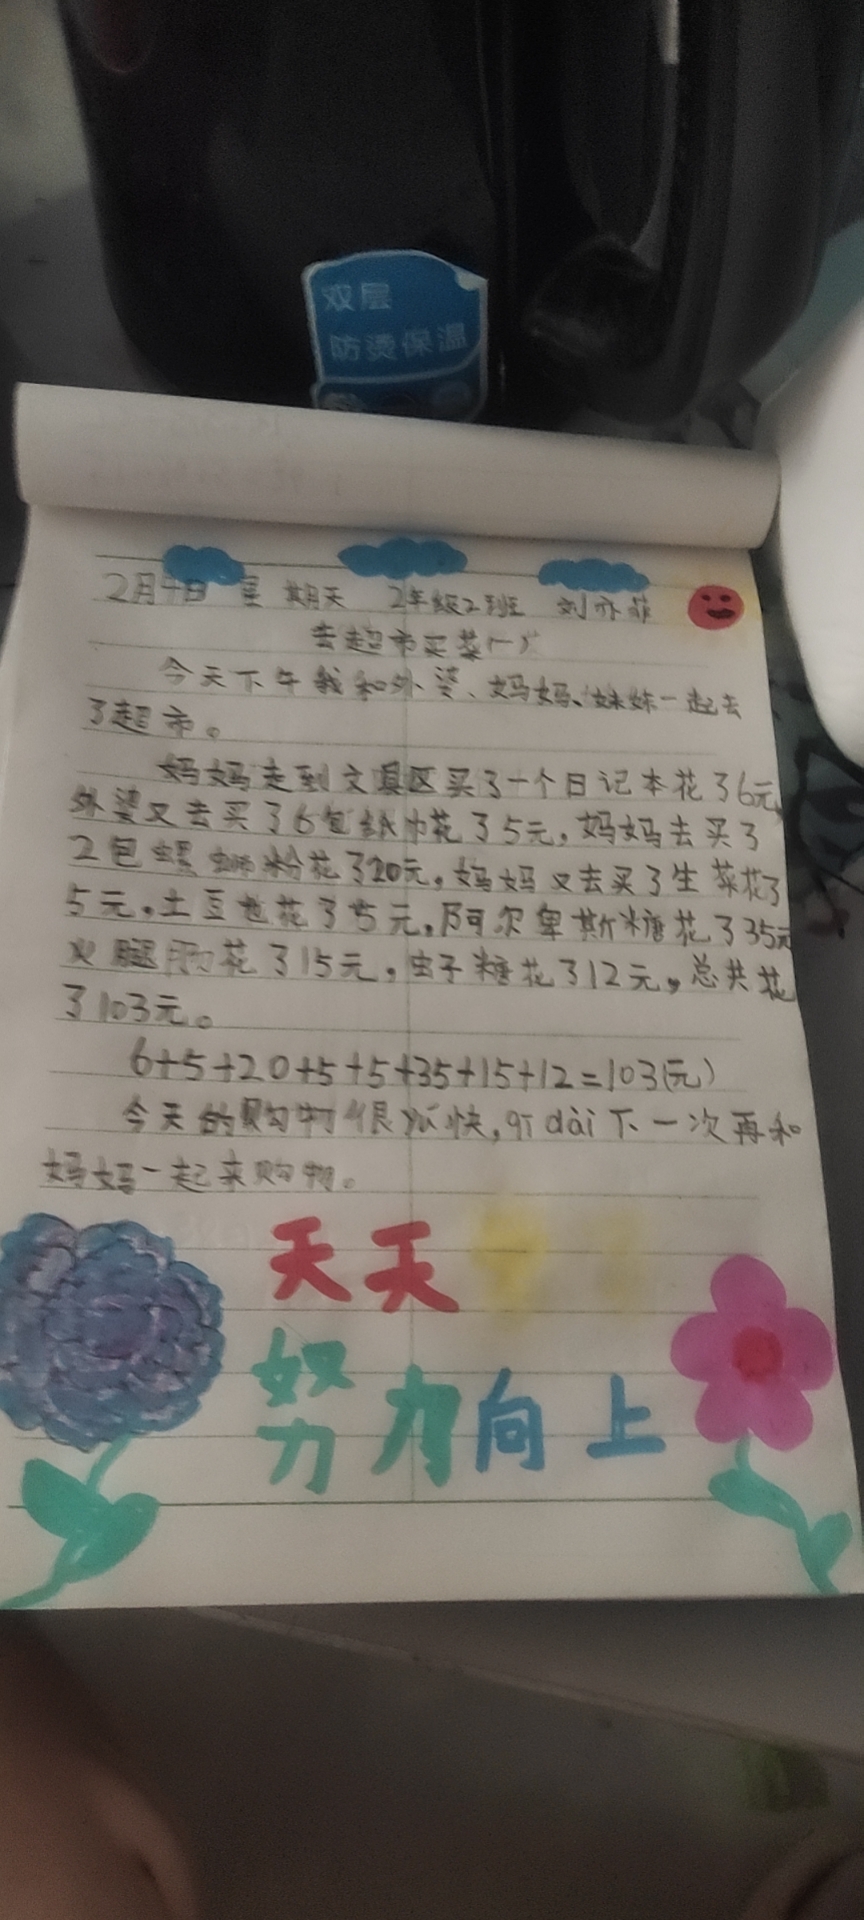 双层
防烫保温
2月4日 星期天 2年级2班 刘亦菲
去超市买菜(一)
今天下午我和外婆、妈妈、妹妹一起去
了超市。
妈妈走到文具区买了一个日记本花了6元,
外婆又去买了6包纸巾花了5元,妈妈去买了
2包螺蛳粉花了20元,妈妈又去买了生菜花了
5元,土豆花了5元,阿尔卑斯糖花了35元
火腿肠花了15元,虫子糖花了12元,总共花
了103元。
6+5+20+5+5+35+15+12=103(元)
今天的购物很愉快,qī dài下一次再和
妈妈一起来购物。
天天
努力向上